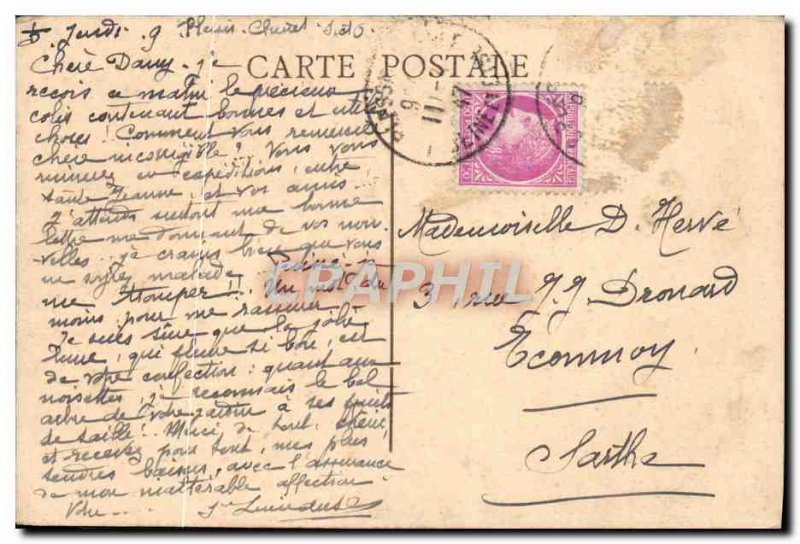 Jeudi 9
CARTE POSTALE
Chère Dany - je
reçois ce matin le précieux
colis contenant bonnes et utiles
choses ! Comment vous remercier
chère incorrigible ? Vous vous
ruinerez en expéditions, entre
tante Jeanne, et vos amis
J'attends surtout une bonne
lettre me donnant de vos nou-
velles. je crains bien que vous
ne soyez malade
me tromper ! Un mot du
moins pour me rassurer -
Je suis sûre que la jolie
laine, qui fleure si bon, est
de votre confection ; quant aux
noisettes, je reconnais le bel
arbre de votre jardin à ses fruits
de taille ! Merci de tout, chérie
et recevez pour tout, mes plus
tendres baisers, avec l'assurance
de mon inaltérable affection.
Mademoiselle D. Hervé
3, rue J.J Dronard
Ecommoy
Sarthe
CPAPHIL